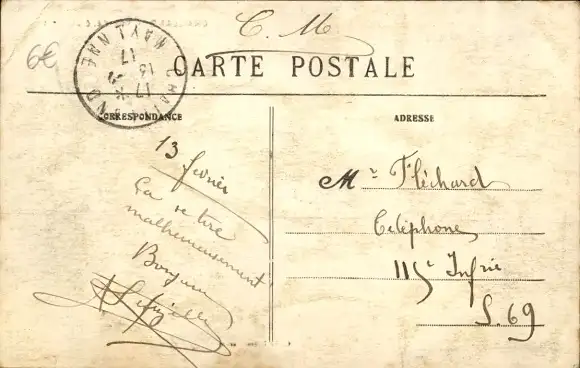 C. M
6€
CHAILLAND
MAYENNE
17 *
13 -2
17
CARTE POSTALE
CORRESPONDANCE
ADRESSE
13 février
Ça se tire
malheureusement
Bonjour
Mr Fléchard
Téléphone
115e Infrie
S. 69